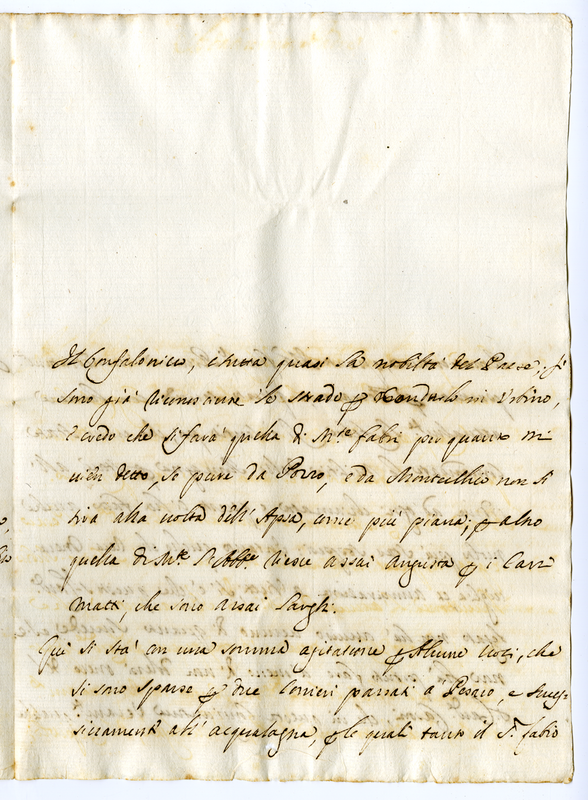 Il Gonfaloniere, e tutta quasi la nobiltà del Paese, si
sono già riconosciute le strade p condurlo in Urbino,
e credo che si farà quella di M.te fabri per quanto mi
vien detto, se pure da Porzo, e da Montecchio non si
tira alla volta dell'Apsa, come più piana; p altro
quella di M.te riesce assai angusta p i Carr
matti, che sono assai larghi.
Qui si stà in una somma agitatione p alcune voci, che
si sono sparse p due Corrieri passati a Pesaro, e succes-
sivamente all'acqualagna, p le quali tanto il S.r fabio